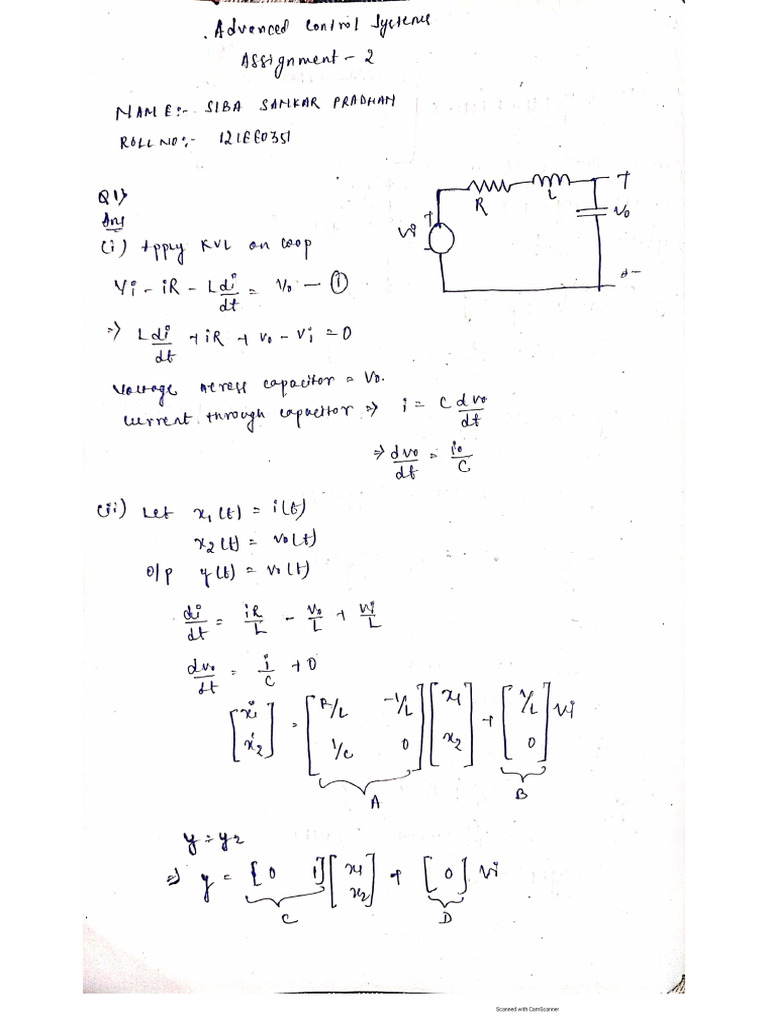 Advanced Control Systems
Assignment - 2
NAME:- SIBA SANKAR PRADHAN
ROLL NO:- 121EE0351
Q1)
Ans
(i) Apply KVL on loop
Vi - iR - L di/dt = V0 - ①
=> L di/dt + iR + V0 - Vi = 0
Voltage across capacitor = V0.
Current through capacitor => i = C dv0/dt
=> dv0/dt = i0/C
Vi + -
R
L
+
V0
o -
(ii) Let x1(t) = i(t)
x2(t) = v0(t)
o/p y(t) = v0(t)
di/dt = iR/L - V0/L + Vi/L
dv0/dt = i/C + 0
[ẋ1 ẋ2] = [R/L -1/L 1/C 0] [x1 x2] + [1/L 0] Vi
A B
y = y2
=> y = [0 1] [x1 x2] + [0] Vi
C D
Scanned with CamScanner